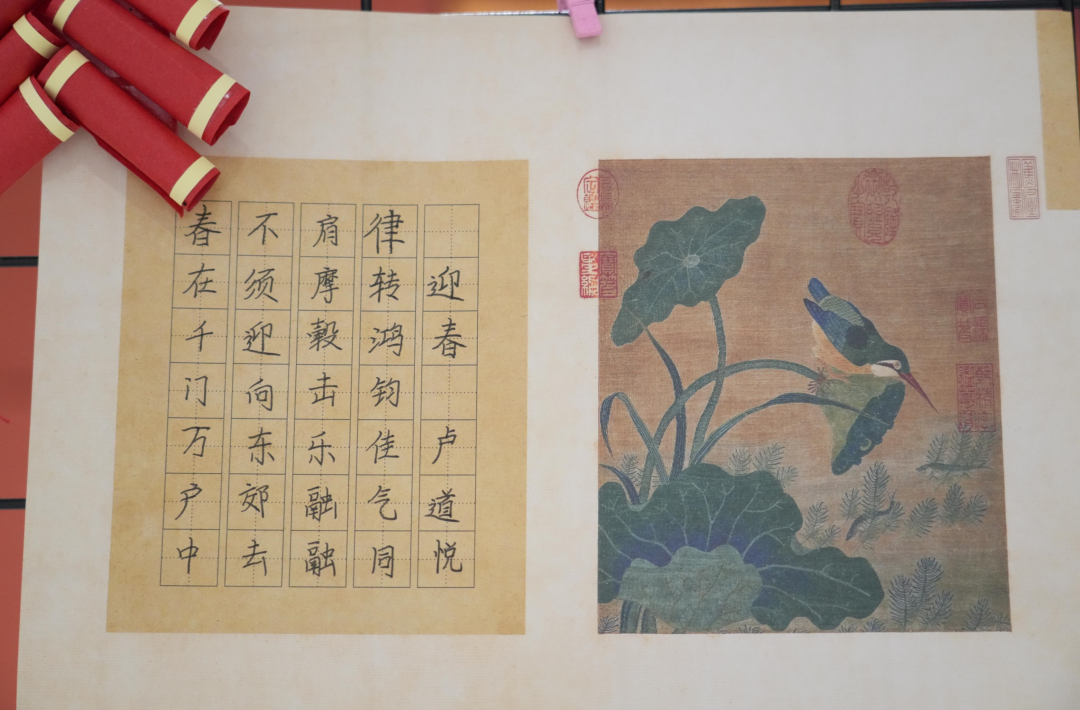 迎春 卢道悦
律转鸿钧佳气同
肩摩毂击乐融融
不须迎向东郊去
春在千门万户中